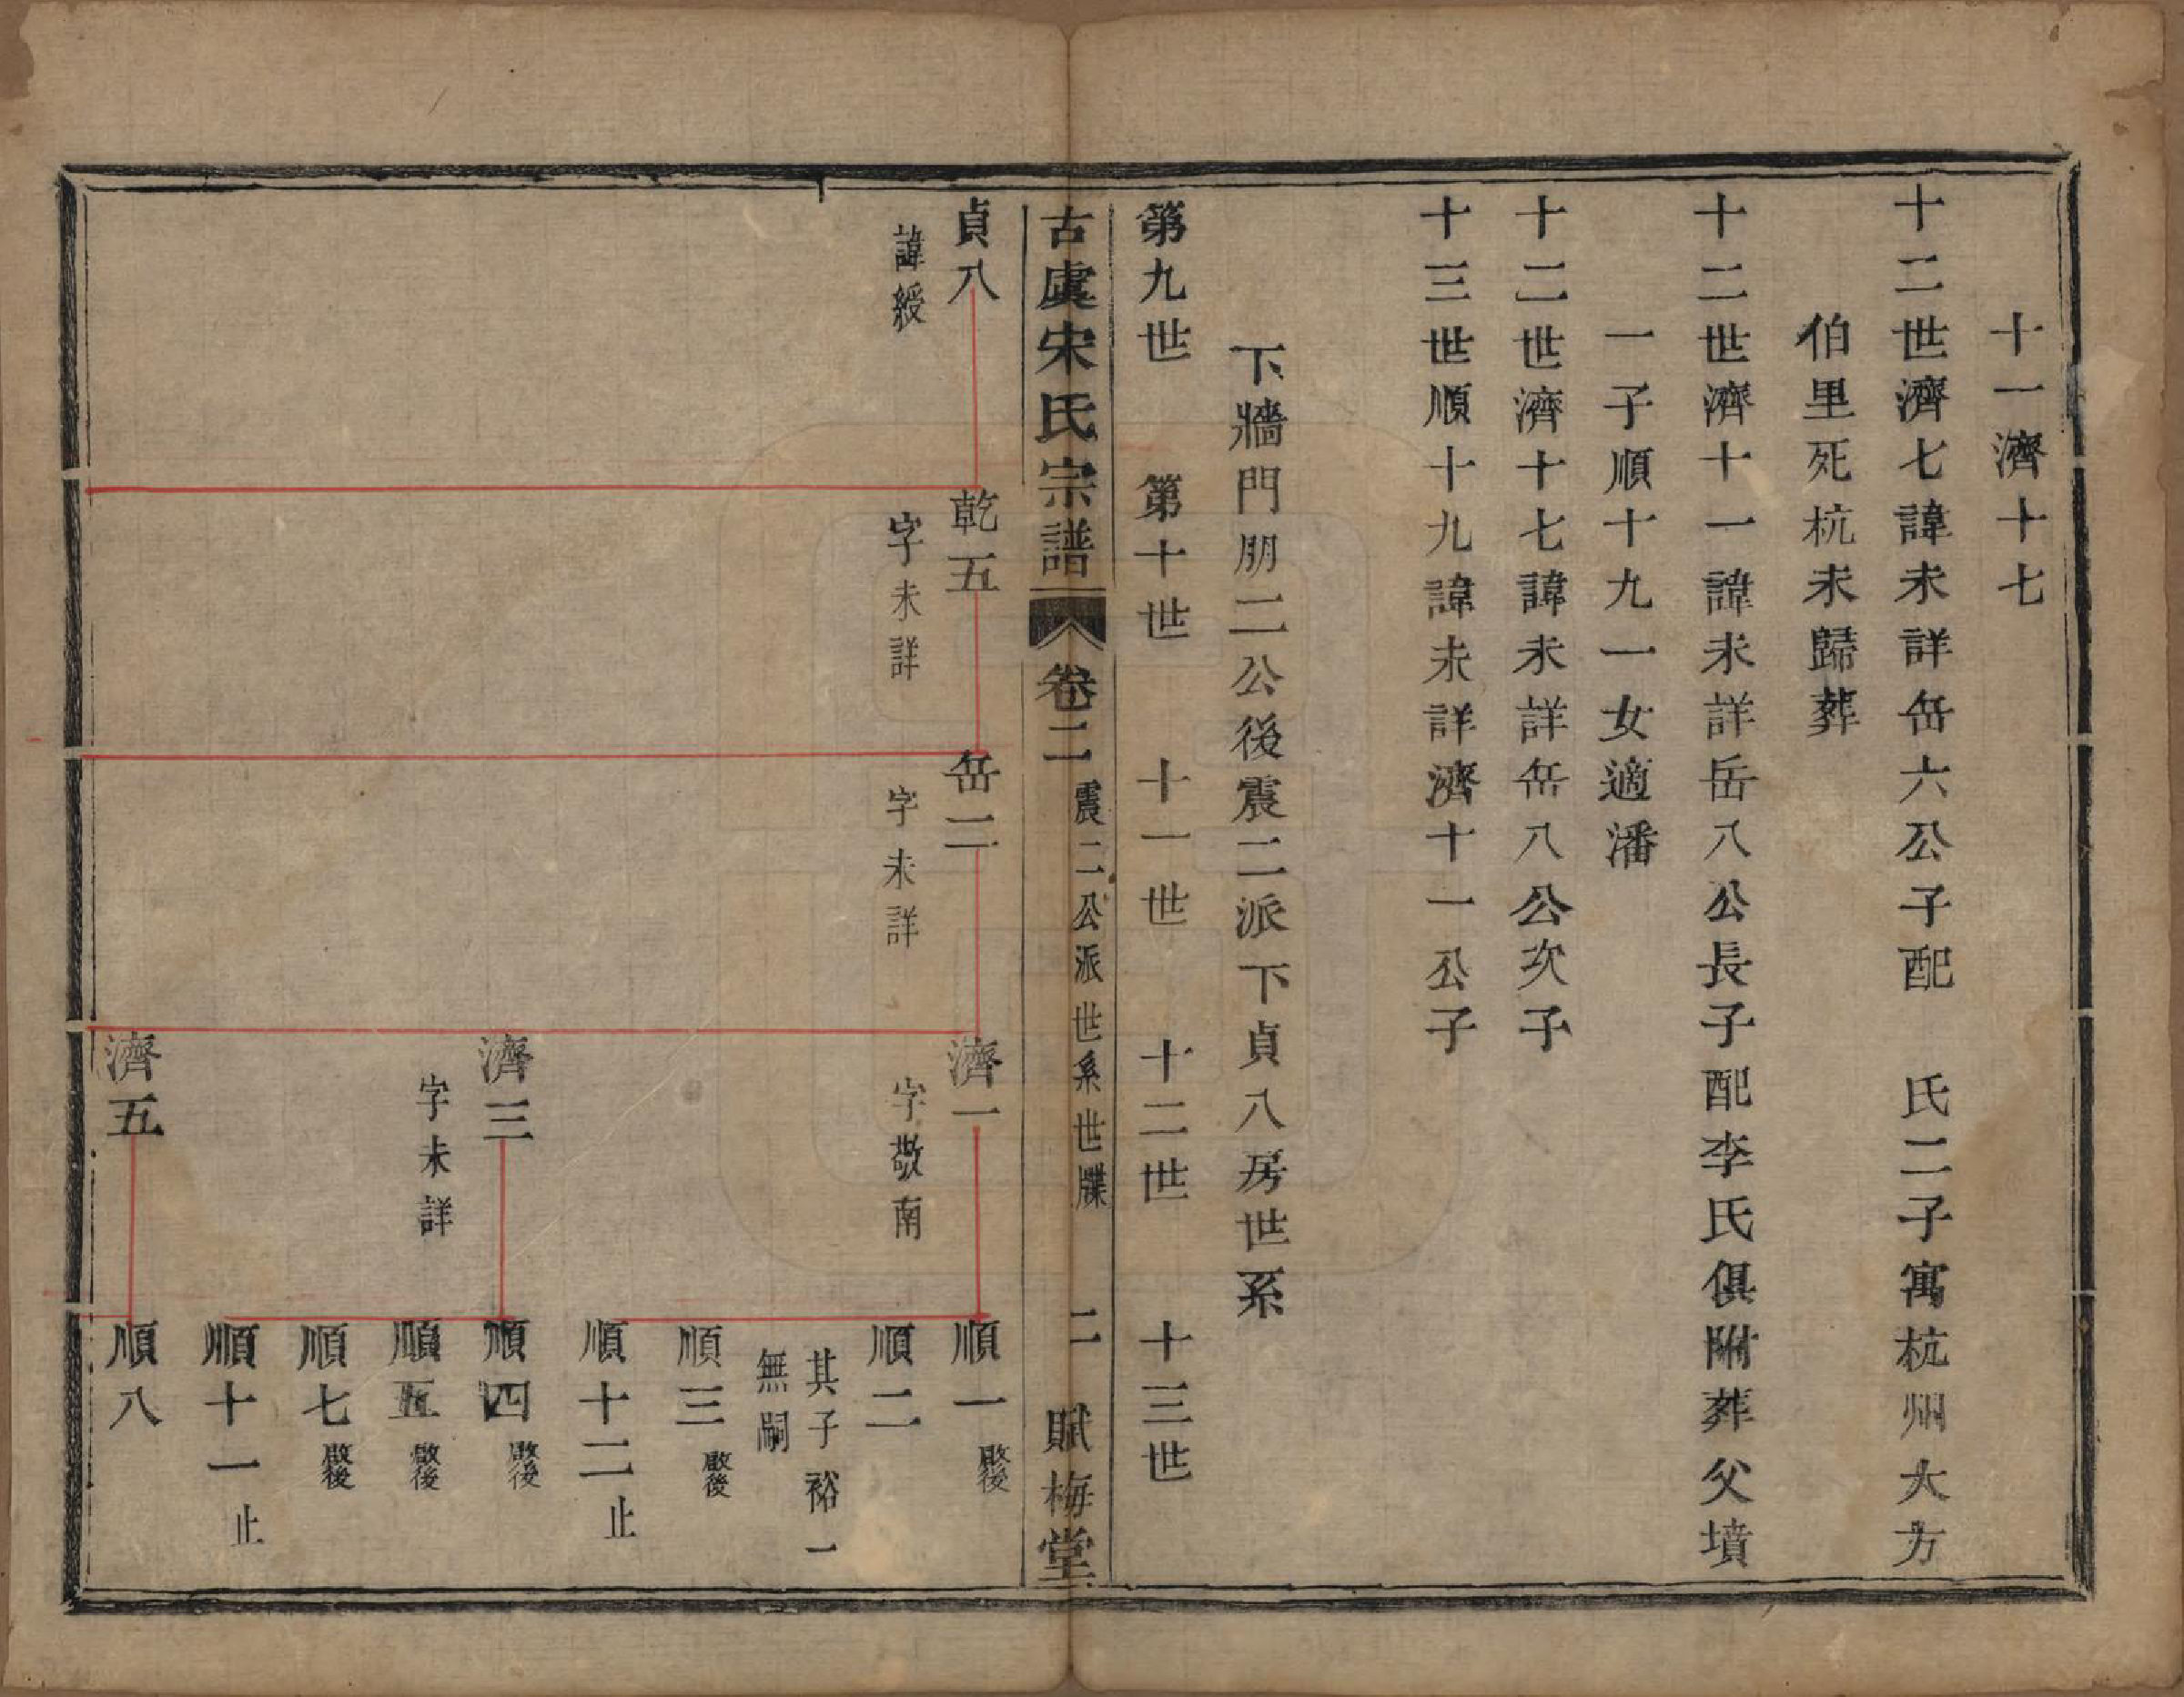 十一濟十七
十二世濟七諱未詳岳六公子配　氏二子寓杭州大方
伯里死杭未歸葬
十二世濟十一諱未詳岳八公長子配李氏俱附葬父墳
一子順十九一女適潘
十二世濟十七諱未詳岳八公次子
十三世順十九諱未詳濟十一公子
下牆門朋二公後震二派下貞八房世系
第九世　第十世　十一世　十二世　十三世
古虞宋氏宗譜　卷二　震二公派世系世牒　二　賦梅堂
貞八　乾五　岳二　濟一　順一　啟後
諱綬　字未詳　字未詳　字敬南　順二
其子裕一
無嗣
順三　啟後
順十二　止
濟三　順四　啟後
字未詳　順五　啟後
順七　啟後
順十一　止
濟五　順八